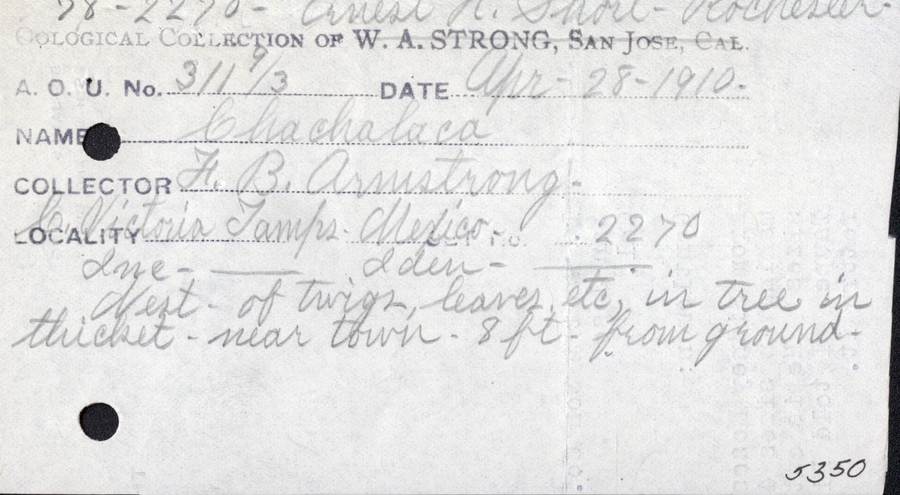 78-2270- Ernest H. Short- Rochester-
OOLOGICAL COLLECTION OF W. A. STRONG, SAN JOSE, CAL.
A. O. U. No. 311 9/3 DATE Apr- 28-1910.
NAME Chachalaca
COLLECTOR F. B. Armstrong-
LOCALITY C. Victoria Tamps- Mexico. SET No. 2270
Inc- —— Iden- ——
Nest- of twigs, leaves, etc, in tree in
thicket- near town- 8 ft- from ground-
5350